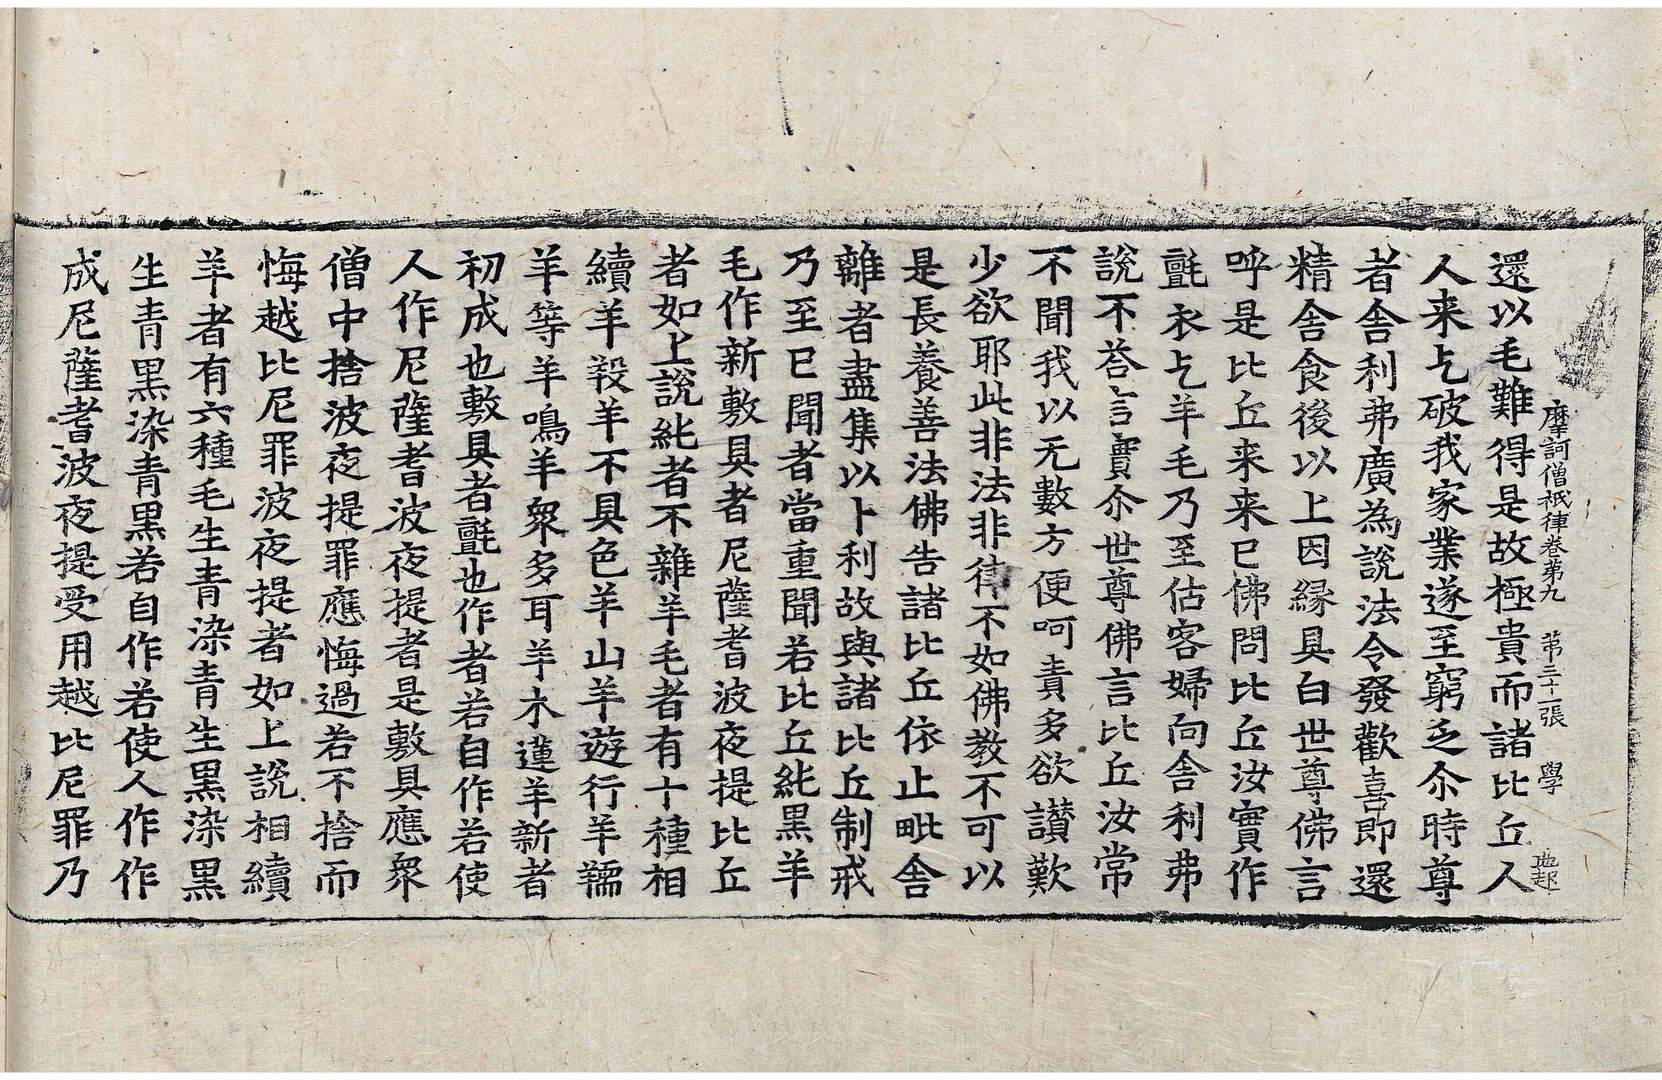 摩訶僧祇律卷第九　第三十二張　學
還以毛難得是故極貴而諸比丘人
人来乞破我家業遂至窮乏尒時尊
者舍利弗廣為說法令發歡喜即還
精舍食後以上因緣具白世尊佛言
呼是比丘来来已佛問比丘汝實作
氈衣乞羊毛乃至估客婦向舍利弗
說不荅言實尒世尊佛言比丘汝常
不聞我以无數方便呵責多欲讃歎
少欲耶此非法非律不如佛教不可以
是長養善法佛告諸比丘依止毗舍
離者盡集以十利故與諸比丘制戒
乃至已聞者當重聞若比丘純黑羊
毛作新敷具者尼薩耆波夜提比丘
者如上說純者不雜羊毛者有十種相
續羊羖羊不具色羊山羊遊行羊羺
羊等羊鳴羊衆多耳羊木蓮羊新者
初成也敷具者氈也作者若自作若使
人作尼薩耆波夜提者是敷具應衆
僧中捨波夜提罪應悔過若不捨而
悔越比尼罪波夜提者如上說相續
羊者有六種毛生青染青生黑染黑
生青黑染青黑若自作若使人作作
成尼薩耆波夜提受用越比尼罪乃